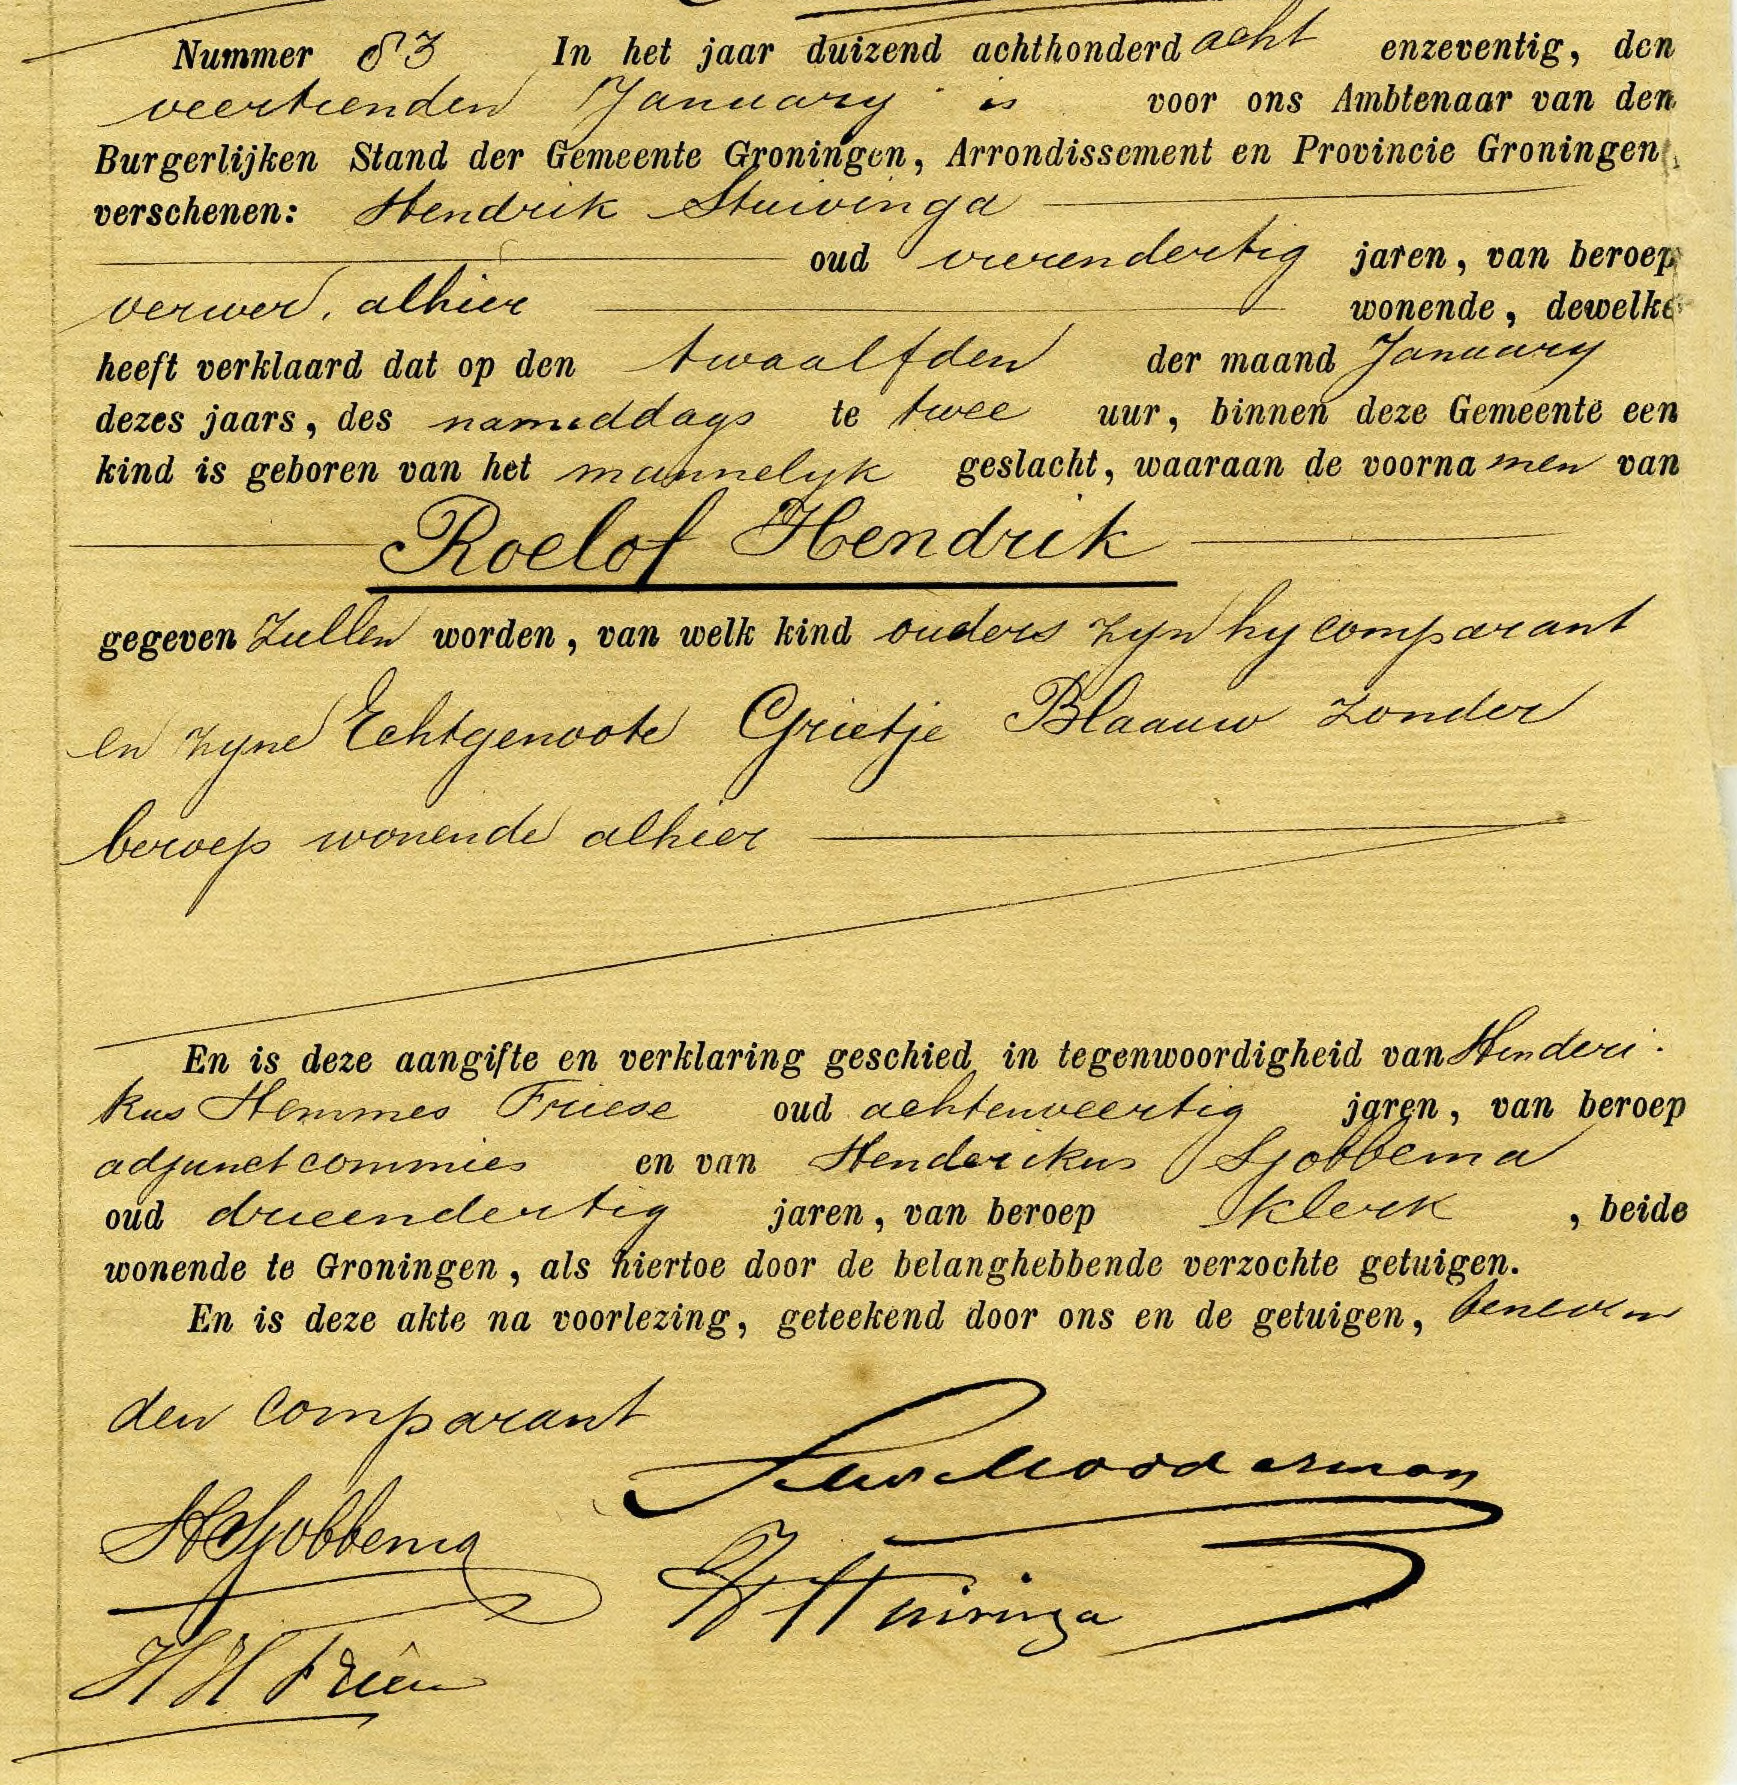 Nummer 83 In het jaar duizend achthonderd acht enzeventig, den
veertienden January is voor ons Ambtenaar van den
Burgerlijken Stand der Gemeente Groningen, Arrondissement en Provincie Groningen,
verschenen: Hendrik Stuivinga
oud vierendertig jaren, van beroep
verwer, alhier wonende, dewelke
heeft verklaard dat op den twaalfden der maand January
dezes jaars, des namiddags te twee uur, binnen deze Gemeente een
kind is geboren van het mannelyk geslacht, waaraan de voorna men van
Roelof Hendrik
gegeven zullen worden, van welk kind ouders zyn hy comparant
en zyne Echtgenoote Grietje Blaauw zonder
beroep wonende alhier
En is deze aangifte en verklaring geschied in tegenwoordigheid van Henderi-
kus Hemmes Friese oud achtenveertig jaren, van beroep
adjunct commies en van Henderikus Sjobbema
oud drieendertig jaren, van beroep klerk, beide
wonende te Groningen, als hiertoe door de belanghebbende verzochte getuigen.
En is deze akte na voorlezing, geteekend door ons en de getuigen, benevens
den comparant
Modderman
HSjobbema
H Stuivinga
H H Friese